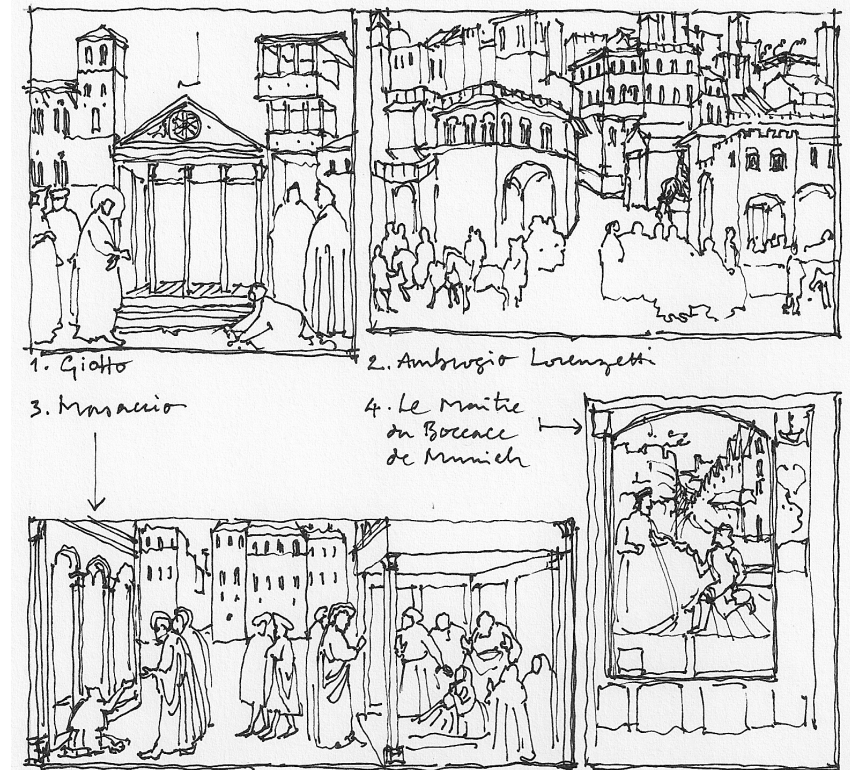 1. Giotto
2. Ambrogio Lorenzetti
3. Masaccio
4. Le Maître
du Boccace
de Munich